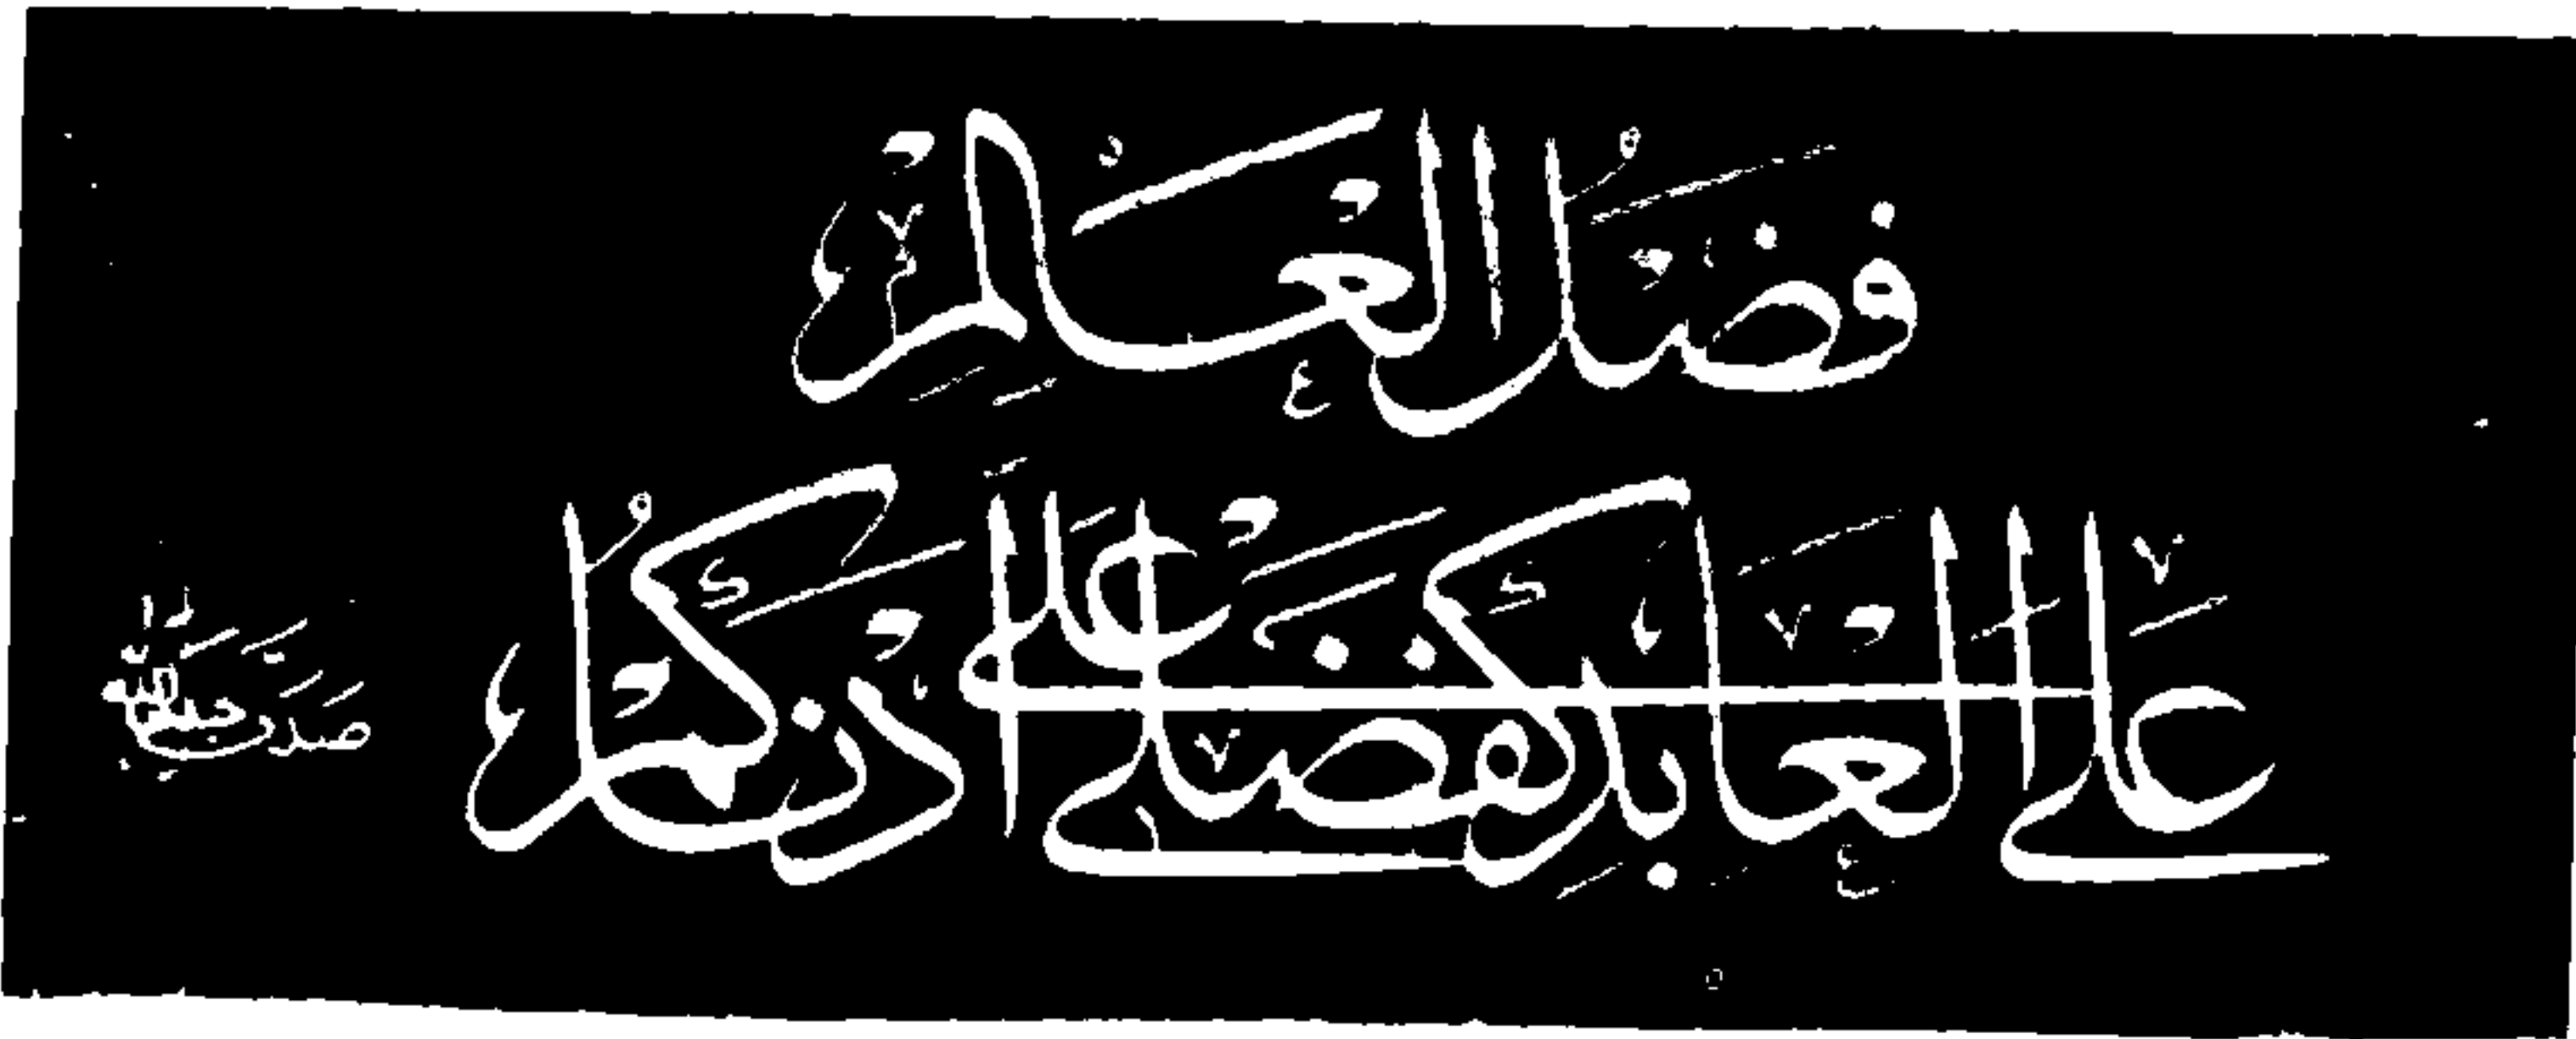 فضل العالم
على العابد كفضلي على أدناكم
صدق حبيب الله